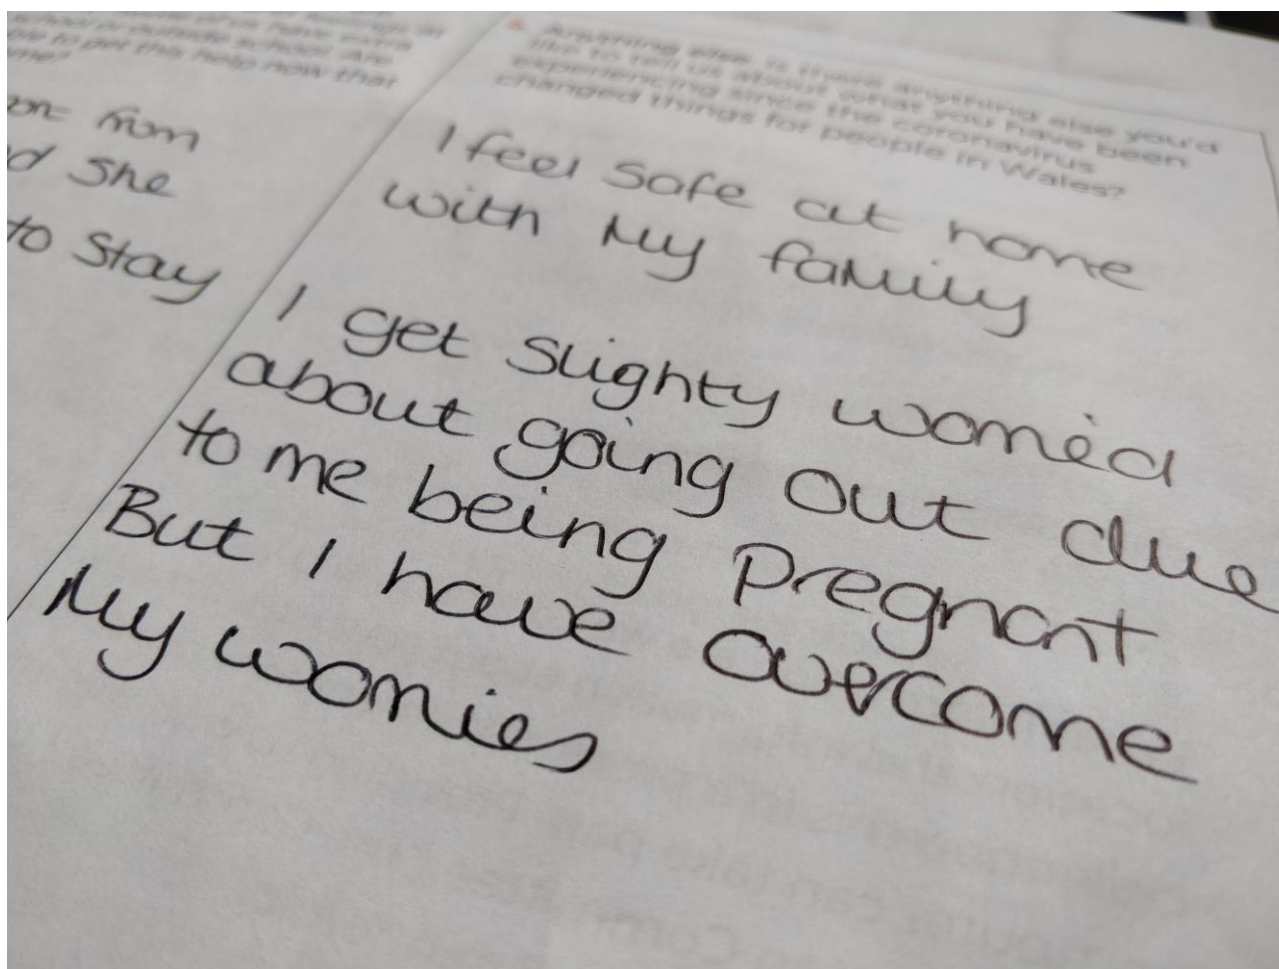 me?
able to get this help now that
from
d She
to Stay
Anything else. Is there anything else you'd
like to tell us about what you have been
experiencing since the coronavirus
changed things for people in Wales?
I feel Safe at home
with My family
I get Slighty worried
about going out due
to me being Pregnant
But I have Overcome
My worries